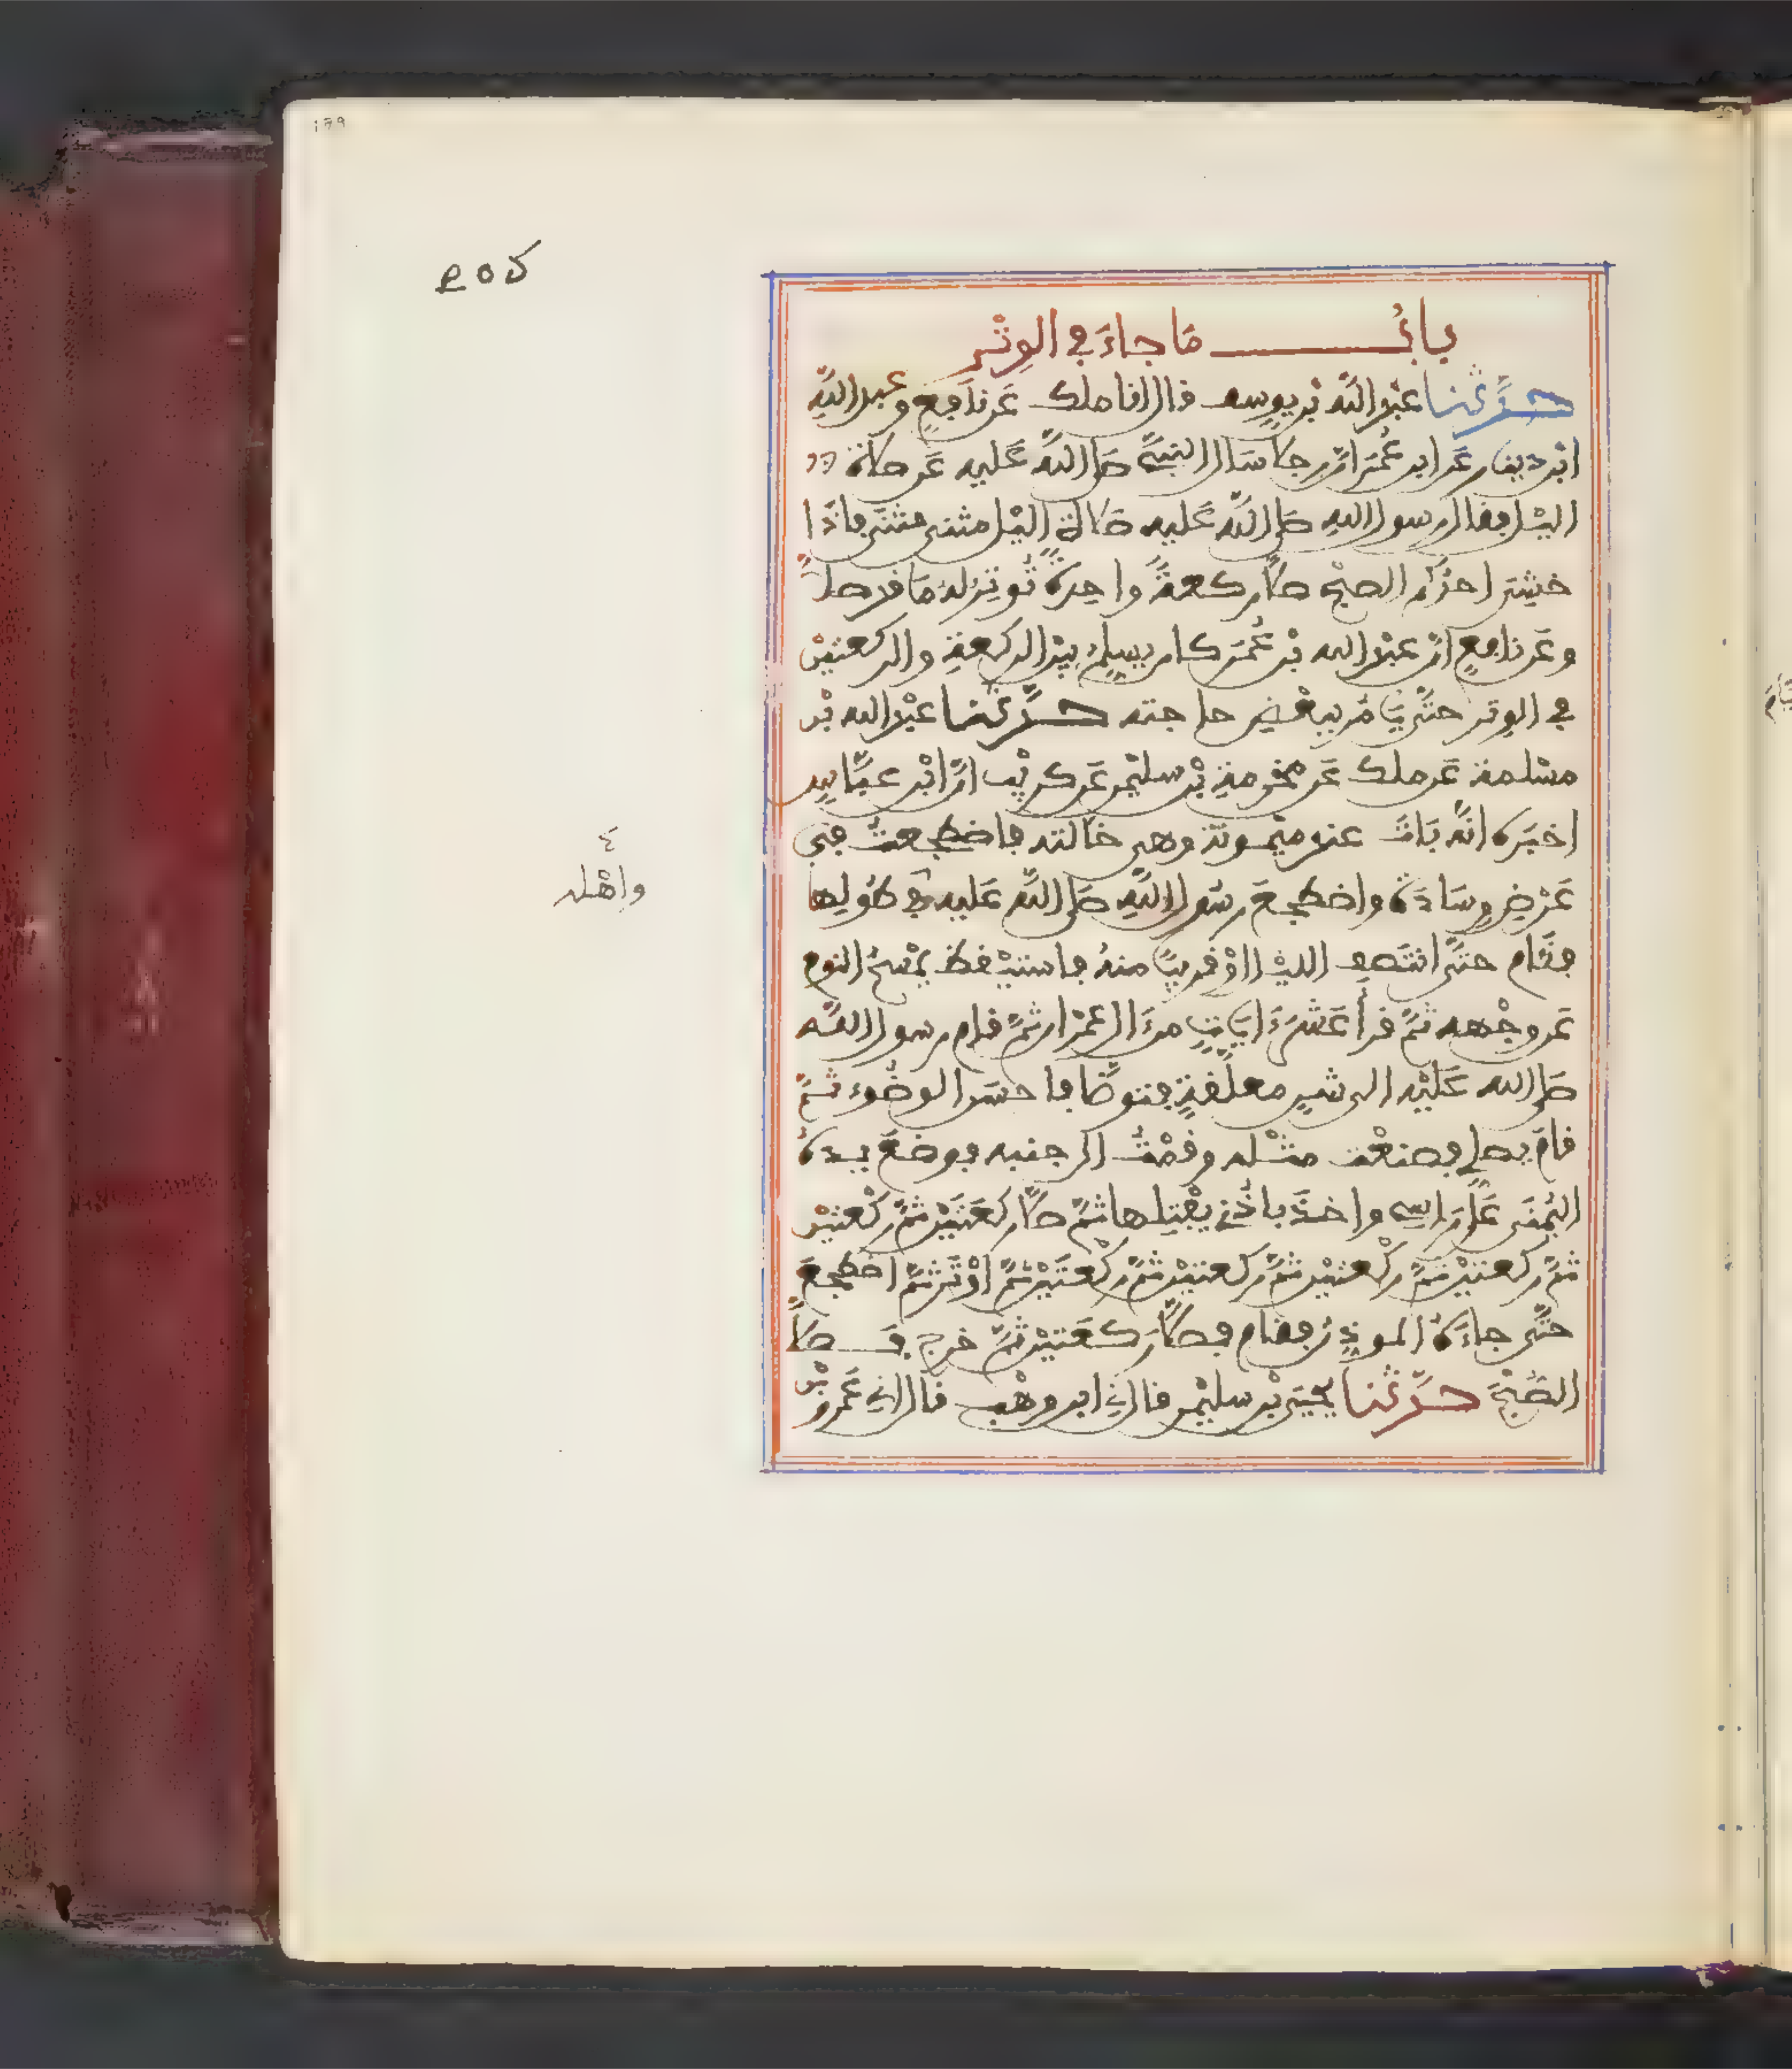 باب ما جاء في الوتر
حدثنا عبد الله بن يوسف قال انا ملك عن نافع وعبد الله
ابن دينار عن ابن عمر ان رجلا سال النبي صلى الله عليه عن صلاة
اليل فقال رسول الله صلى الله عليه صلاة اليل مثنى مثنى فاذا
خشي احدكم الصبح صلى ركعة واحدة توتر له ما قد صلى
وعن نافع ان عبد الله بن عمر كان يسلم بين الركعة والركعتين
في الوتر حتى يامر ببعض حاجته حدثنا عبد الله بن
مسلمة عن ملك عن مخرمة بن سليمن عن كريب ان ابن عباس
اخبره انه بات عند ميمونة وهي خالته فاضطجعت في
عرض وسادة واضطجع رسول الله صلى الله عليه في طولها
فقام حتى انتصف الليل او قريبا منه فاستيقظ يمسح النوم
عن وجهه ثم قرأ عشر ءايات من ءال عمران ثم قام رسول الله
صلى الله عليه الى شن معلقة فتوضا فاحسن الوضوء ثم
قام يصلي فصنعت مثله وقمت الى جنبه فوضع يده
اليمنى على راسي واخذ باذني يفتلها ثم صلى ركعتين ثم ركعتين
ثم ركعتين ثم ركعتين ثم ركعتين ثم ركعتين ثم اوتر ثم اضطجع
حتى جاءه الموذن فقام فصلى ركعتين ثم خرج فصلى
الصبح حدثنا يحيى بن سليمن قال ني ابن وهب قال اني عمرو بن
واهله
179